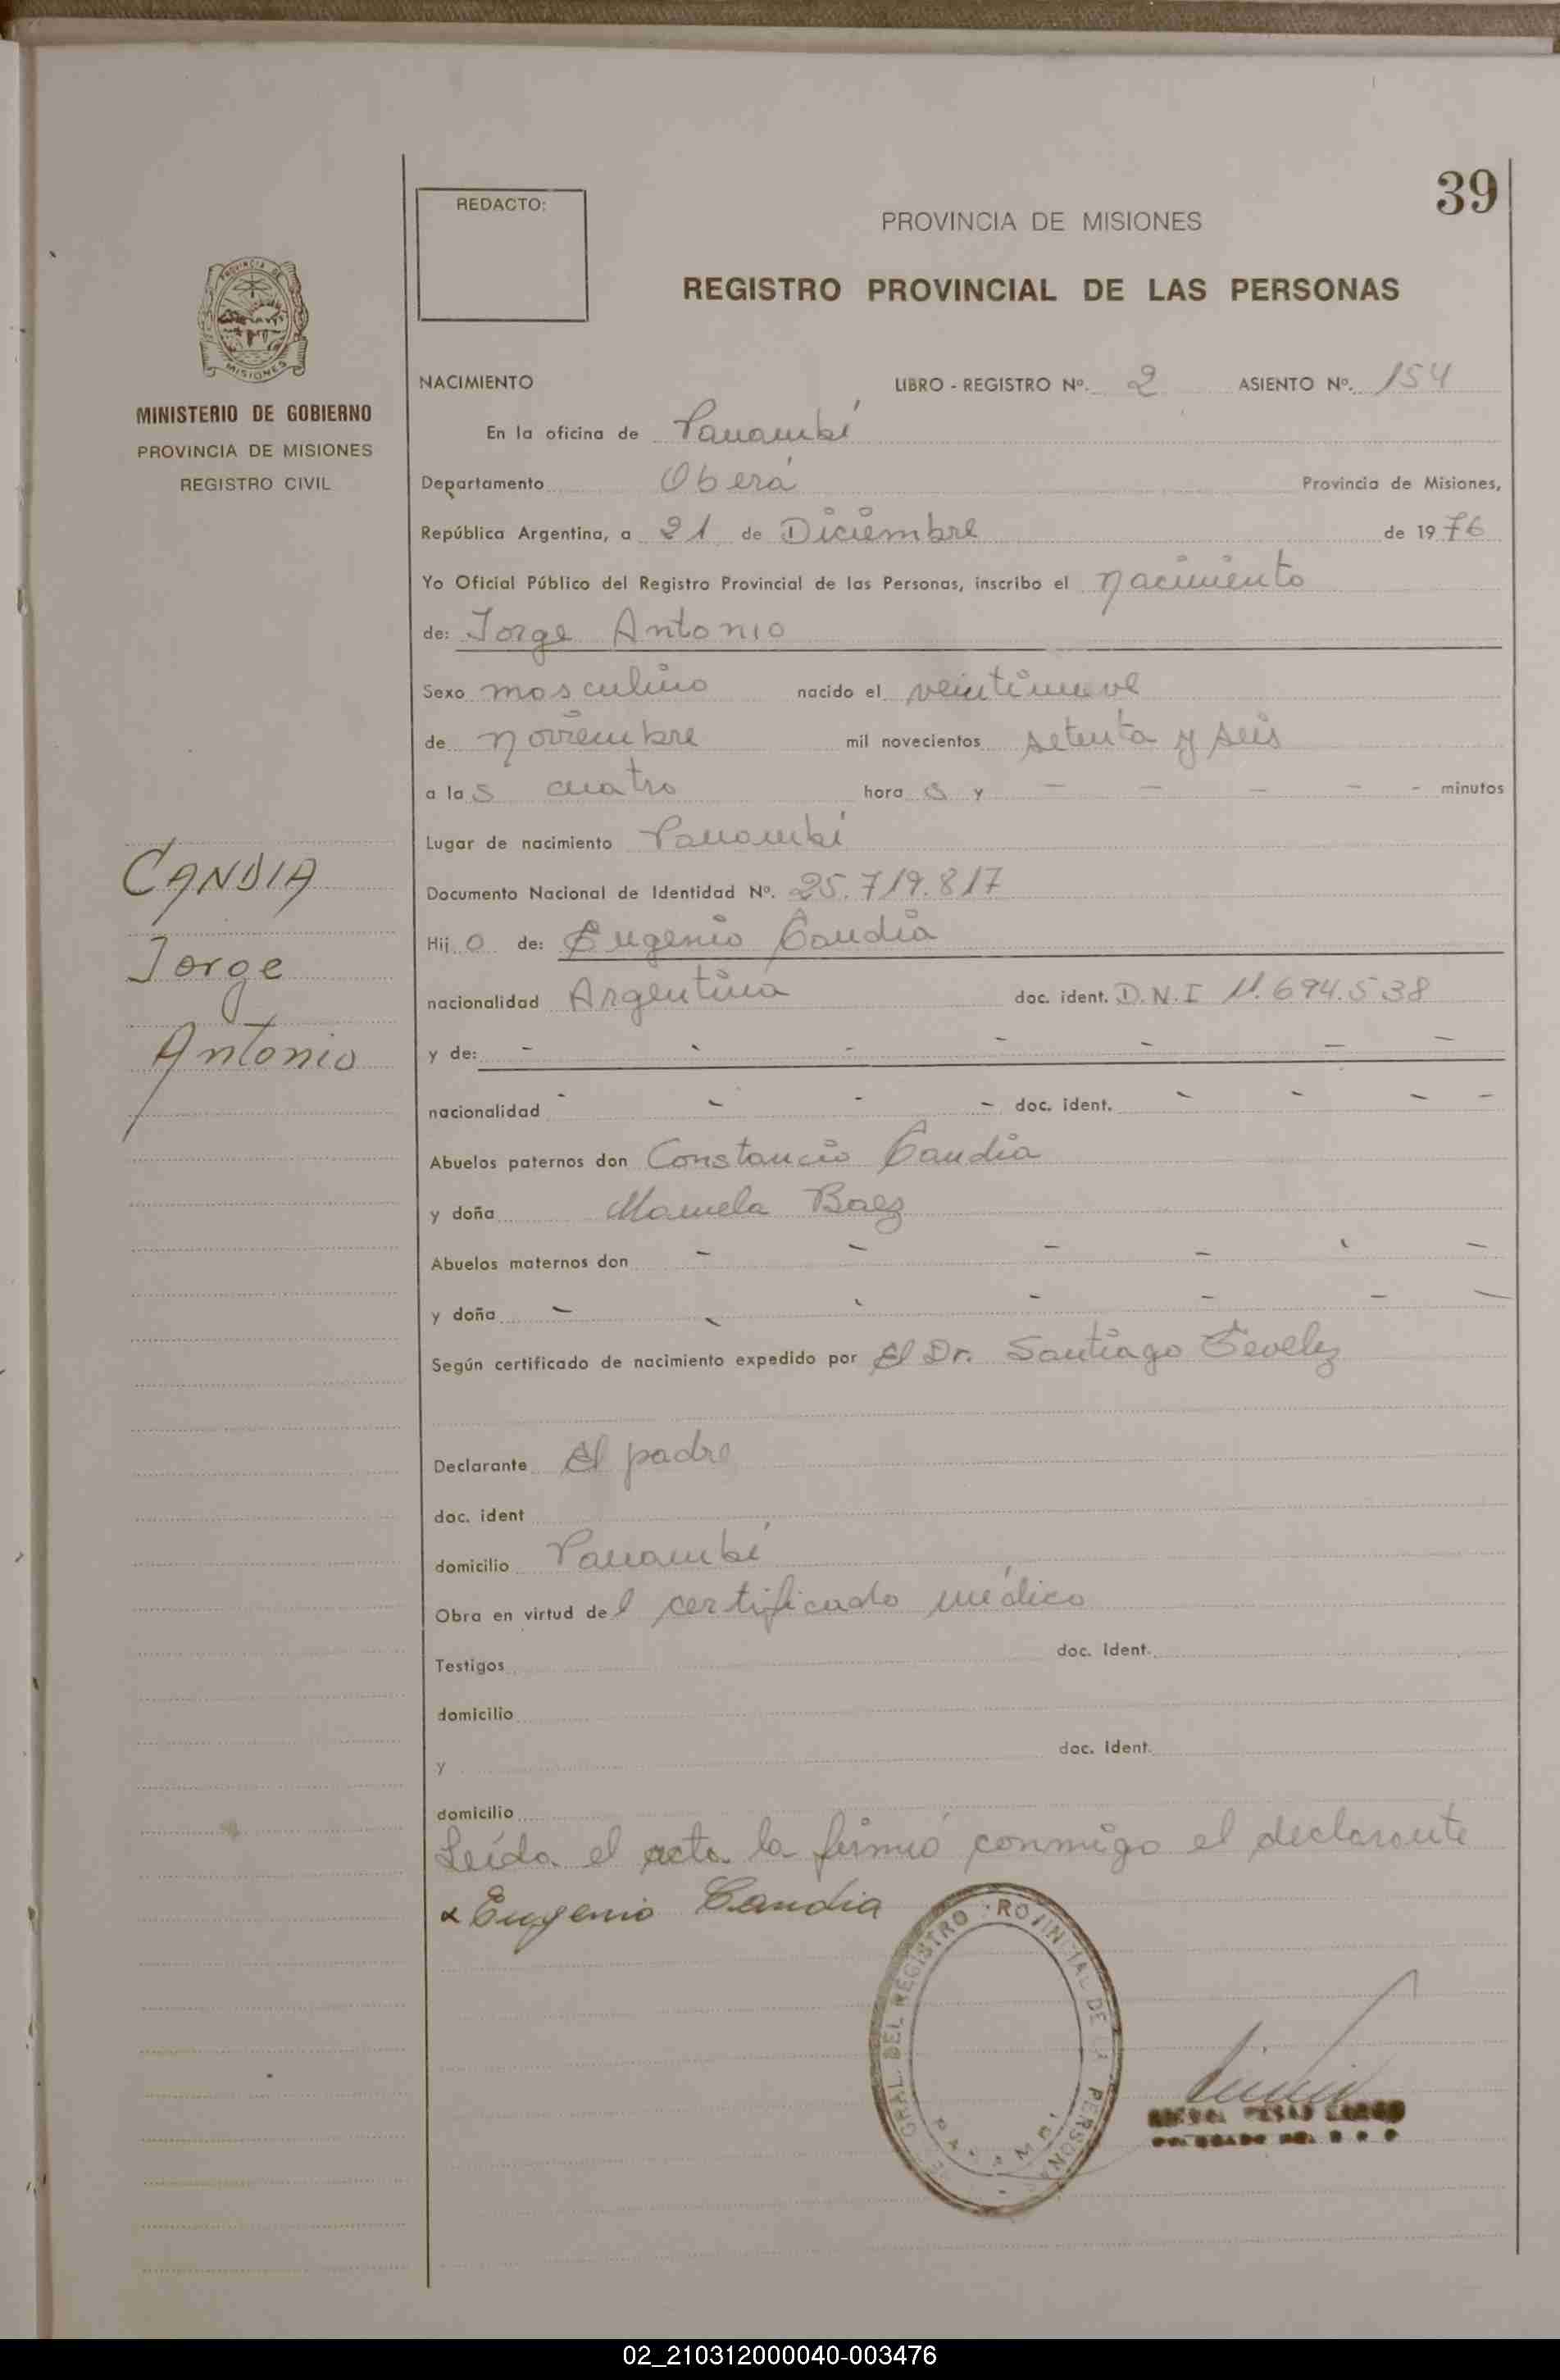 39
REDACTO:
PROVINCIA DE MISIONES
REGISTRO PROVINCIAL DE LAS PERSONAS
MINISTERIO DE GOBIERNO
PROVINCIA DE MISIONES
REGISTRO CIVIL
NACIMIENTO LIBRO - REGISTRO Nº. 2 ASIENTO Nº. 154
En la oficina de Panambí
Departamento Oberá Provincia de Misiones,
República Argentina, a 21 de Diciembre de 1976
Yo Oficial Público del Registro Provincial de las Personas, inscribo el nacimiento
de: Jorge Antonio
Sexo masculino nacido el veintinueve
de noviembre mil novecientos setenta y seis
a las cuatro horas y - - - - - minutos
Lugar de nacimiento Panambí
CANDIA
Jorge
Antonio
Documento Nacional de Identidad Nº. 25.719.817
Hijo de: Eugenio Candia
nacionalidad Argentina doc. ident. D.N.I 11.694.538
y de: - - - - - - -
nacionalidad - - - - doc. ident. - - - -
Abuelos paternos don Constancio Candia
y doña Manuela Baez
Abuelos maternos don - - - - - -
y doña - - - - - - -
Según certificado de nacimiento expedido por El Dr. Santiago
Declarante El padre
doc. ident
domicilio Panambí
Obra en virtud del certificado médico
Testigos doc. Ident.
domicilio
y doc. Ident.
domicilio
Leída el acta la firmó conmigo el declarante
x Eugenio Candia
GRAL. DEL REGISTRO PROVINCIAL DE LA PERSONAS
02_210312000040-003476